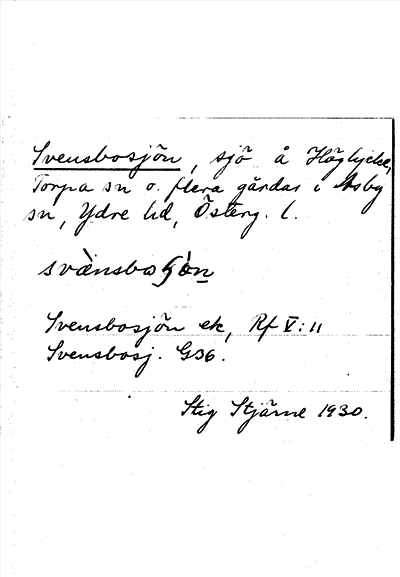 Svensbosjön, sjö å Höglycke,
Torpa sn o. flera gårdar i Asby
sn, Ydre hd, Österg. l.
svä̀nsboʃö̀n
Svensbosjön ek, Rf V:11
Svensbosj. G36.
Stig Stjärne 1930.